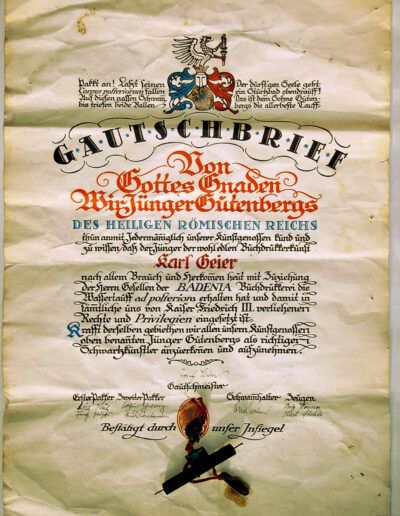 Packt an! Laßt seinen
Corpus posteriorum fallen
Auf diesen nassen Schwam,
bis triefen beide Ballen
Der durst'gen Seele gebt
ein Sturtzbad obendrauff!
Das ist dem Sohne Guten-
bergs die allerbeste Tauff.
G·A·U·T·S·C·H·B·R·I·E·F
Von
Gottes Gnaden
Wir Jünger Gutenbergs
DES HEILIGEN RÖMISCHEN REICHS
thun anmit Jedermäniglich unserer Kunstgenossen kund und
zu wissen, daß der Jünger der wohledlen Buchdrückerkunst
Karl Geier
nach altem Brauch und Herkomen heut mit Zuziehung
der Herrn Gesellen der BADENIA Buchdrückerei die
Wassertauff ad posteriora erhalten hat und damit in
sämtliche uns von Kaiser Friedrich III. verliehenen
Rechte und Privilegien eingesetzt ist.
Krafft derselben gebiethen wir allen unsern Kunstgenossen
oben benanten Jünger Gutenbergs als richtigen
Schwartzkünstler anzuerkenen und aufzunehmen.
Gautschmeister
Erster Packer Zweiter Packer Schwamhalter Zeugen
Bestätigt durch unser Insiegel